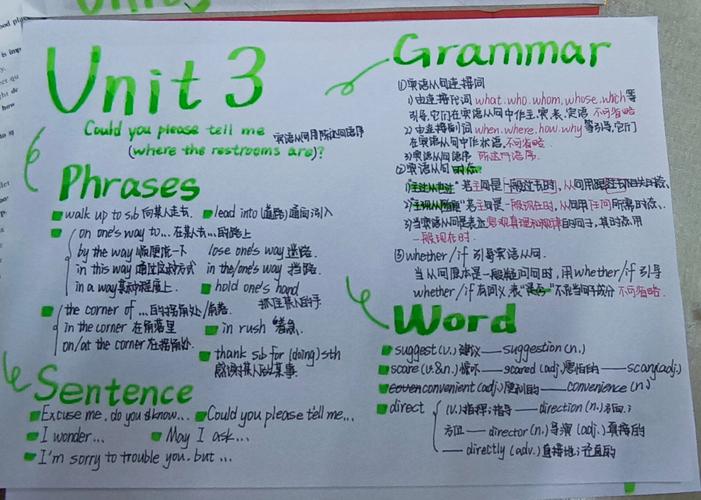 Unit 3
Could you please tell me
(where the restrooms are)?
宾语从句用陈述句语序
Phrases
walk up to sb 向某人走去
lead into (道路)通向引入
on one's way to... 在某人去...的路上
by the way 顺便提一下
lose one's way 迷路
in this way 通过这种方式
in the/one's way 挡路
in a way 某种程度上
hold one's hand
抓住某人的手
the corner of ...
in the corner 在角落里
in rush 匆忙
on/at the corner 在拐角处
thank sb for (doing) sth
感谢某人做某事
Sentence
Excuse me, do you know...
Could you please tell me...
I wonder...
May I ask...
I'm sorry to trouble you, but...
Grammar
①宾语从句连接词
1)由连接代词 what. who. whom. whose. which 等
引导,它们在宾语从句中作主.宾.表.定语 不可省略
2)由连接副词 when. where. how. why 等引导,它们
在宾语从句中作状语,不可省略
3)宾语从句语序 陈述句语序.
②宾语从句 时态.
3)当宾语从句是表达客观真理和规律的句子,其时态.用
一般现在时.
③ whether/if 引导宾语从句.
当从句原本是一般疑问句时,用 whether/if 引导
whether/if 有词义 表"是否" 不在句中作成分 不可省略.
Word
suggest (v.) 建议 — suggestion (n.)
scare (v.&n.) 惊吓 — scared (adj.) 害怕的 — scary (adj.)
convenient (adj.) 便利的 — convenience (n.)
direct
(v.) 指挥;指导 — direction (n.) 方向;
方位 — director (n.) 导演 (adj.) 直接的
— directly (adv.) 直接地;径直的